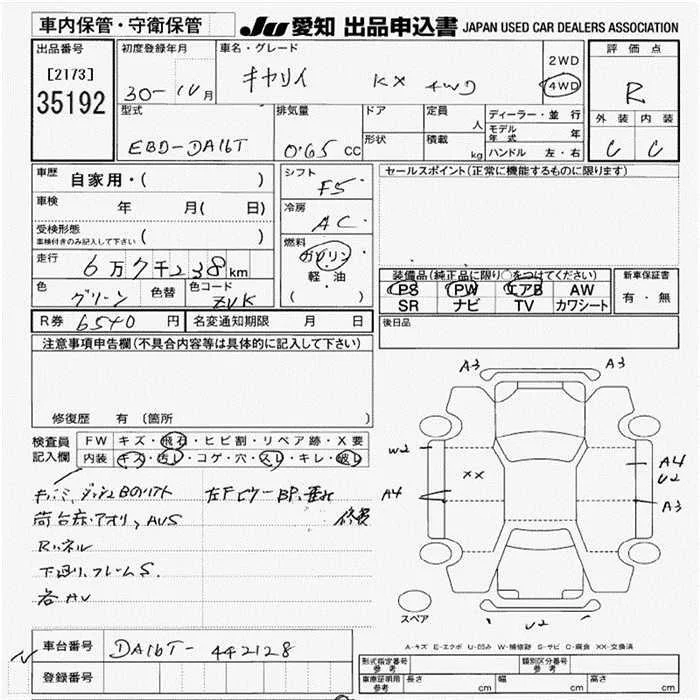 車内保管・守衛保管
JU愛知 出品申込書 JAPAN USED CAR DEALERS ASSOCIATION
出品番号
[2173]
35192
初度登録年月
30 - 10月
車名・グレード
キャリイ KX 4WD
2WD
4WD
評価点
R
外装 内装
C C
型式
EBD-DA16T
排気量
0.65 CC
ドア
形状
定員
人
積載
kg
ディーラー・並行
モデル年式 年
ハンドル 左・右
車歴 自家用・( )
車検 年 月( 日)
受検形態
車検付きのみ記入して下さい ( )
走行 6万7千238km
色 グリーン 色替 色コード ZVK
シフト F5
冷房 AC
燃料
ガソリン
軽・油
( )
セールスポイント(正常に機能するものに限ります)
装備品(純正品に限り○をつけてください)
PS PW エアB AW
SR ナビ TV カワシート
新車保証書
有・無
R券 6540 円 名変通知期限 月 日
後日品
注意事項申告欄(不具合内容等は具体的に記入して下さい)
修復歴 有 (箇所 )
検査員
記入欄
FW キズ・飛石・ヒビ割・リペア跡・X要
内装 キズ・汚レ・コゲ・穴・スレ・キレ・破レ
左Fピラー BP
修復
荷台床・アオリ、AUS
下廻り、フレームS.
各AU
A3 A3
W2
XX
A4
A4
U2
A3
U2
スペア
A-キズ E-エクボ U-凹み W-補修跡 S-サビ C-腐食 XX-交換済
車台番号 DA16T-442128
登録番号
形式指定番号 参考
類別区分番号 参考
車庫証明用 参考 長さ cm 幅 cm 高さ cm